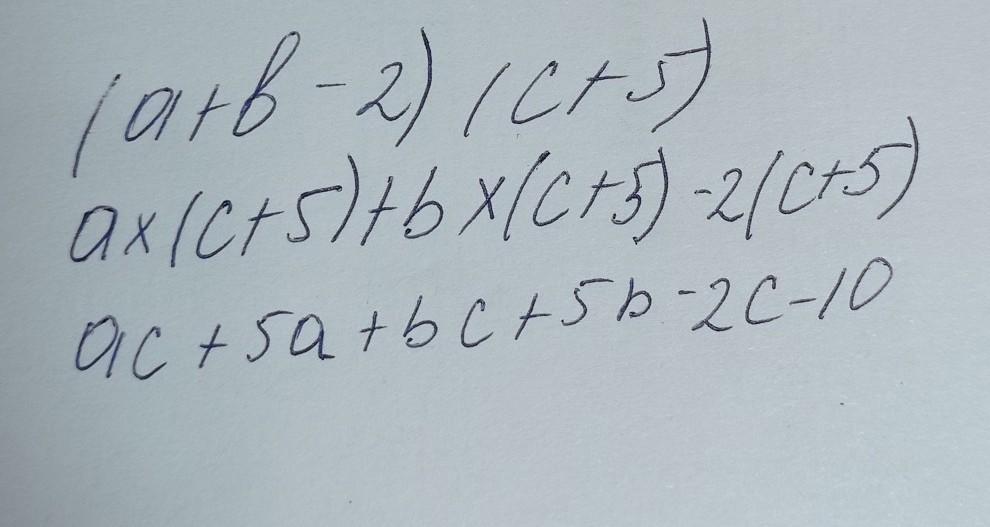 (a+b-2) (c+5)
a×(c+5)+b×(c+5)-2(c+5)
ac+5a+bc+5b-2c-10